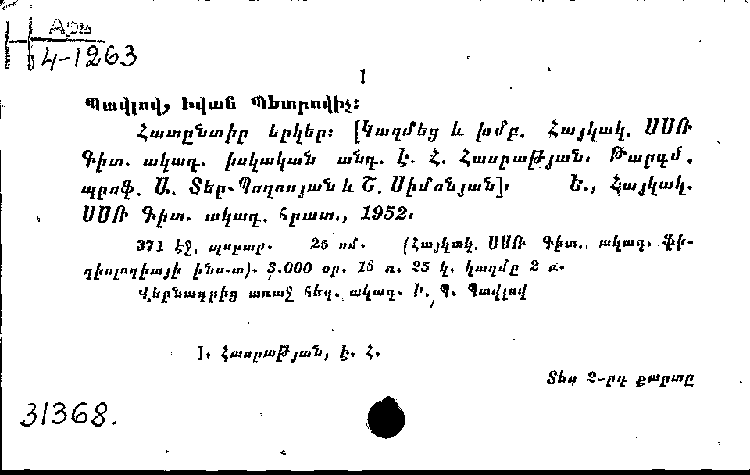 Арм
4-1263
1
Պավլով, Իվան Պետրովիչ:
Հատընտիր երկեր: [Կազմեց և խմբ. Հայկակ. ՍՍՌ
Գիտ. ակադ. իսկական անդ. Է. Հ. Հասրաթյան: Թարգմ.
պրոֆ. Ա. Տեր-Պողոսյան և Շ. Սիմոնյան]: Ե., Հայկակ.
ՍՍՌ Գիտ. ակադ. հրատ., 1952:
371 էջ, պատկեր. 26 սմ. (Հայկակ. ՍՍՌ Գիտ. ակադ. Ֆի-
զիոլոգիայի ինս-տ): 3.000 օր. 16 ռ. 25 կ. կազմը 2 ռ.
Վերնագրից առաջ հեղ. ակադ. Ի. Պ. Պավլով
1. Հասրաթյան, Է. Հ.
Տես 2-րդ քարտը
31368.